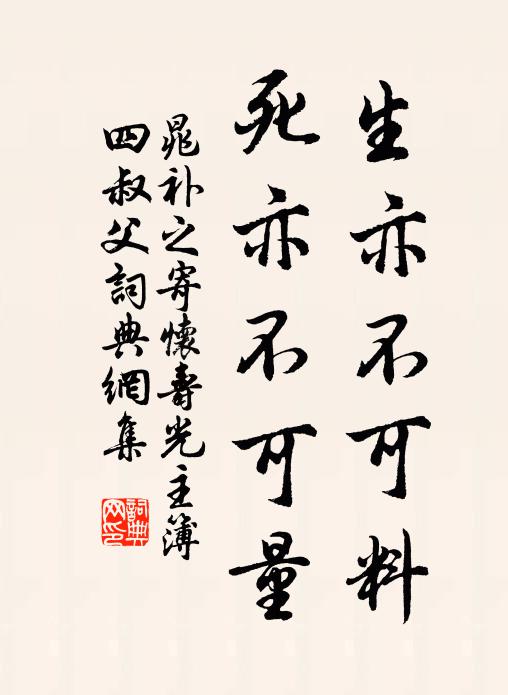 生亦不可料
死亦不可量
晁补之寄懷壽光主簿
四叔父詞典網集
詞典
网印